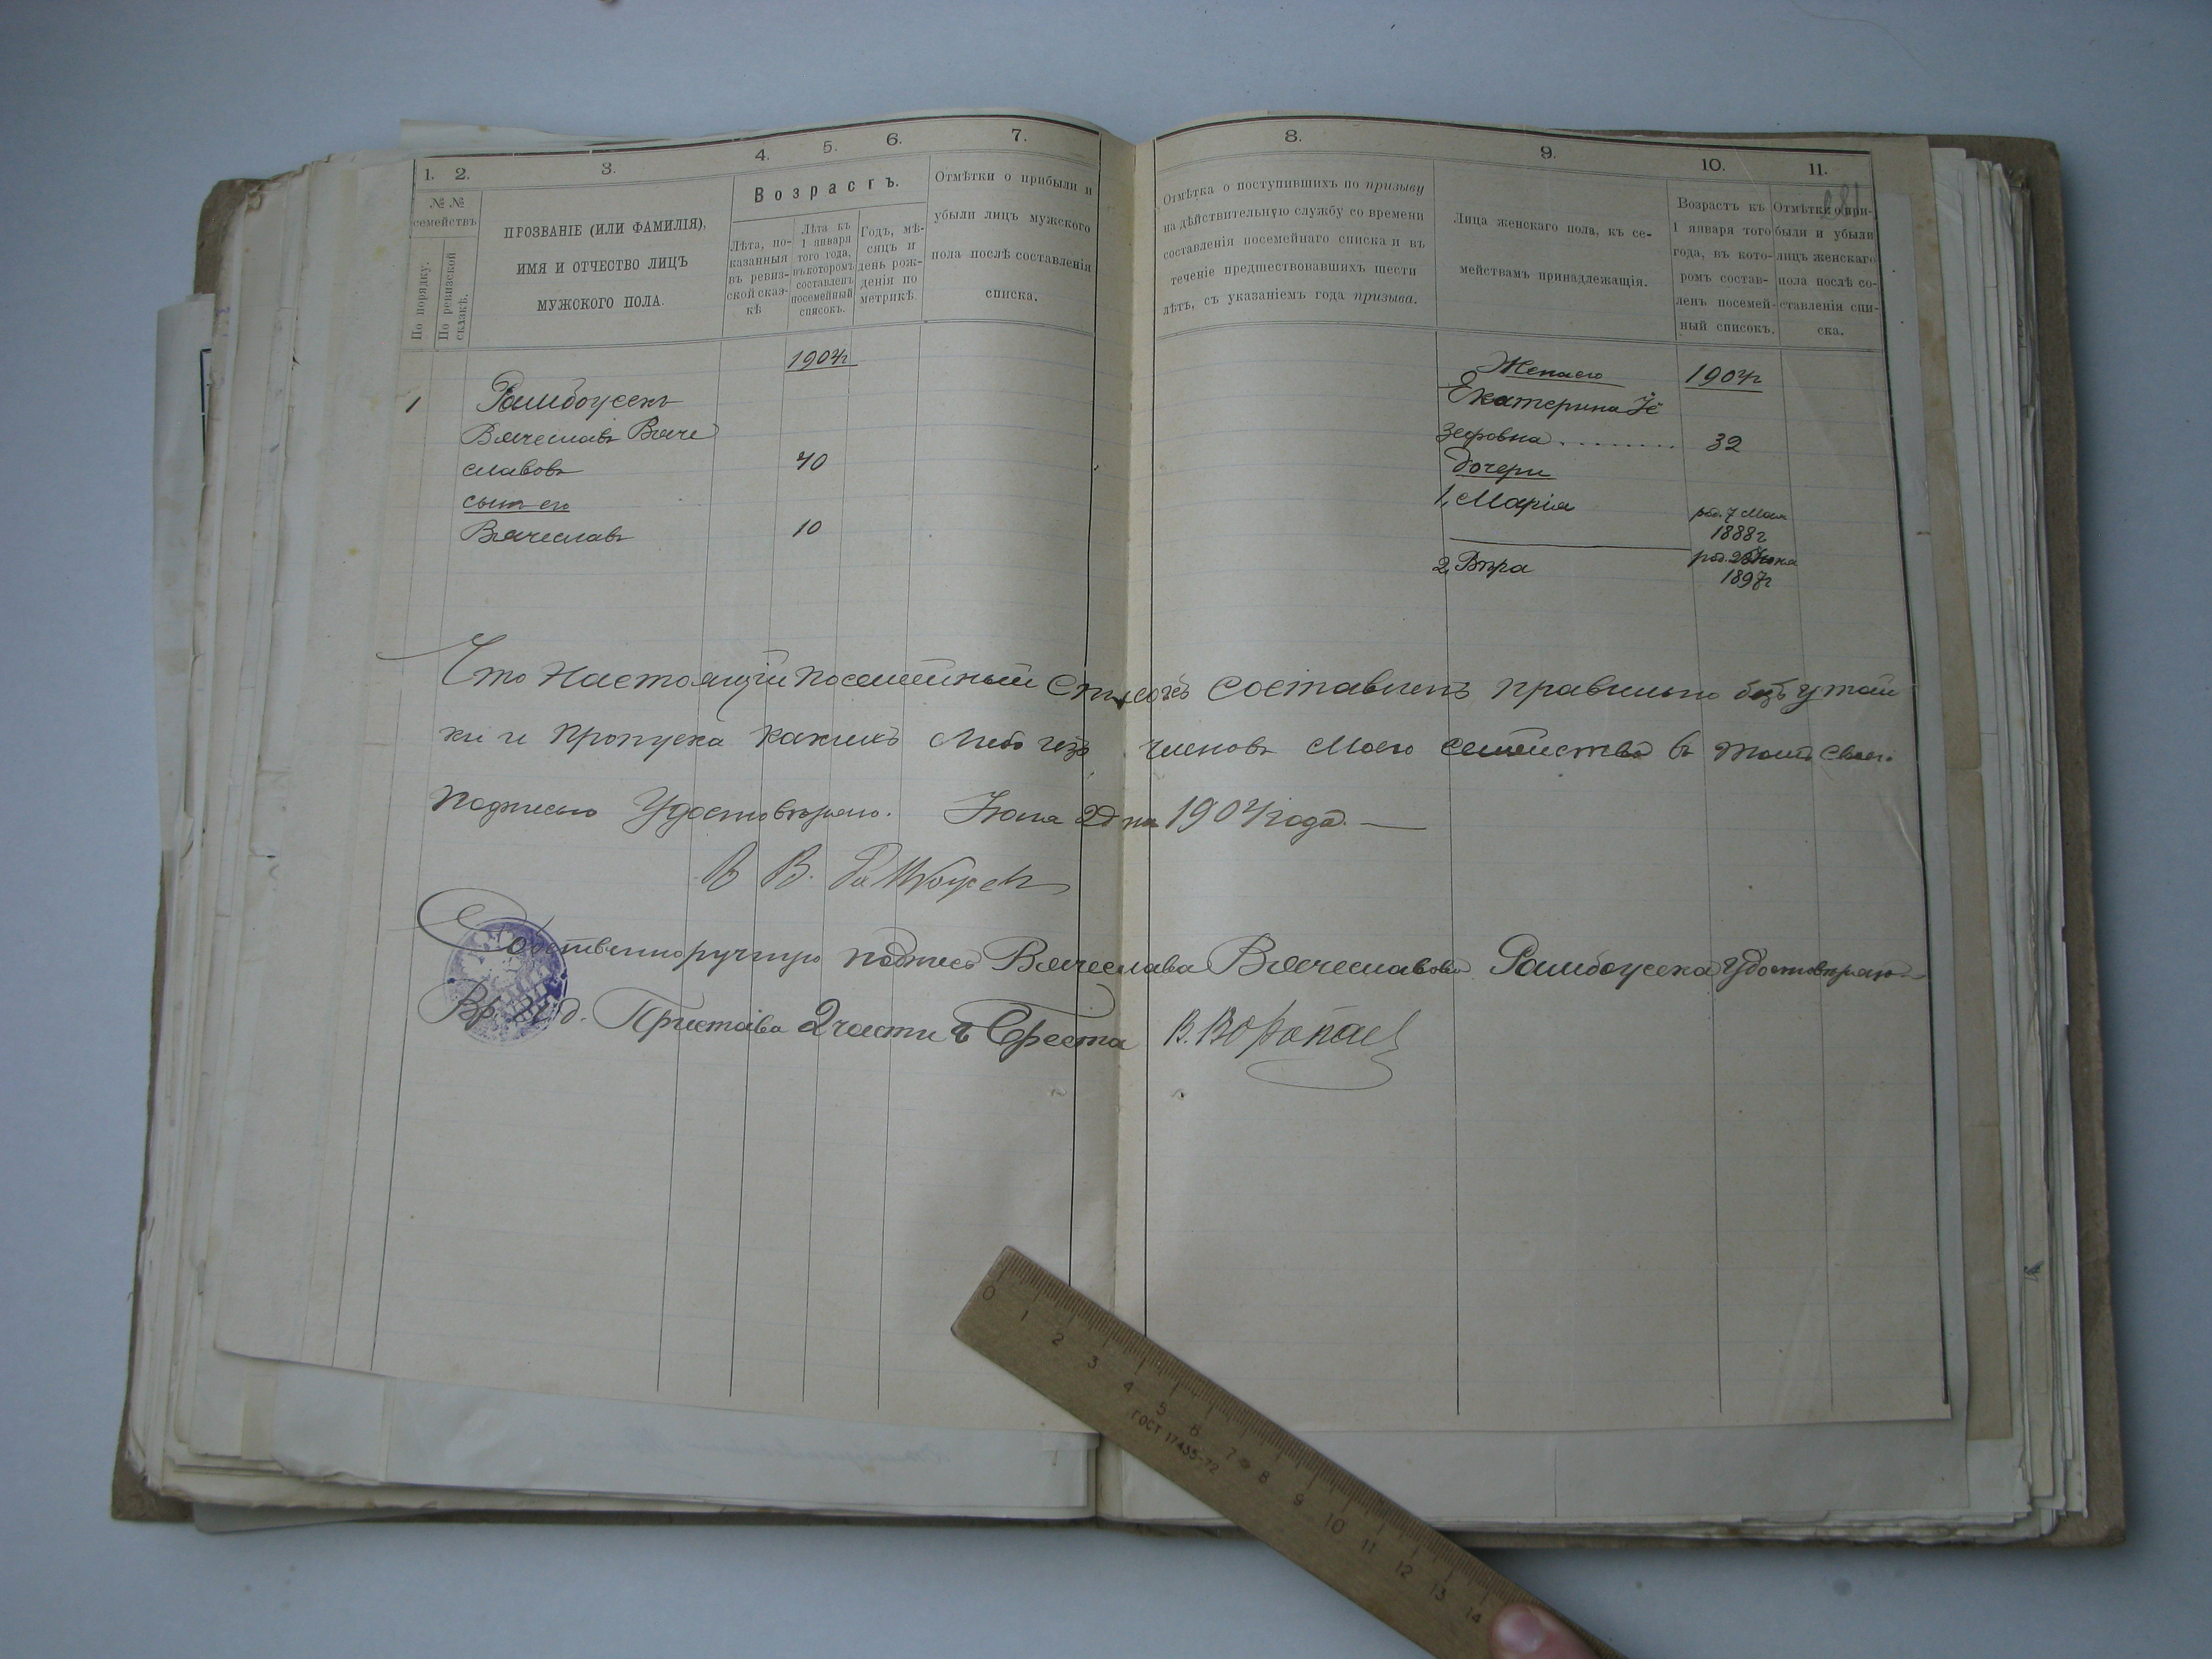 1. 2. 3. 4. 5. 6. 7.
№ №
семействъ
По порядку.
По ревизской сказкѣ.
ПРОЗВАНІЕ (ИЛИ ФАМИЛІЯ),
ИМЯ И ОТЧЕСТВО ЛИЦЪ
МУЖСКОГО ПОЛА.
Возрастъ.
Лѣта, по-
казанныя
въ ревиз-
ской сказ-
кѣ
Лѣта къ
1 января
того года,
въ которомъ
составленъ
посемейный
списокъ.
Годъ, мѣ-
сяцъ и
день рож-
денія по
метрикѣ.
Отмѣтки о прибыли и
убыли лицъ мужского
пола послѣ составленія
списка.
1904г
1 Рамбоусекъ
Вячеславъ Вяче
славовъ 40
сынъ его
Вячеславъ 10
8. 9. 10. 11.
Отмѣтка о поступившихъ по призыву
на дѣйствительную службу со времени
составленія посемейнаго списка и въ
теченіе предшествовавшихъ шести
лѣтъ, съ указаніемъ года призыва.
Лица женскаго пола, къ се-
мействамъ принадлежащія.
Возрастъ къ
1 января того
года, въ кото-
ромъ состав-
ленъ посемей-
ный списокъ.
Отмѣтки о при-
были и убыли
лицъ женскаго
пола послѣ со-
ставленія спи-
ска.
Жена его 1904г
Екатерина Іо
зефовна 32
дочери
1, Марія род. 7 Мая
1888г
2, Вѣра род.
1897г
Что настоящій посемейный списокъ составленъ правильно безъ утай
ки и пропуска какихъ либо изъ членовъ моего семейства въ томъ своею
подписью удостовѣряю. Іюня 2 дня 1904 года. —
В В. Рамбоусекъ
Собственноручную подпись Вячеслава Вячеславова Рамбоусека удостовѣряю
Вр. И. д. Пристава 2 части г Бреста В. Воропаев
0 1 2 3 4 5 6 7 8 9 10 11 12 13 14
ГОСТ 17435-72